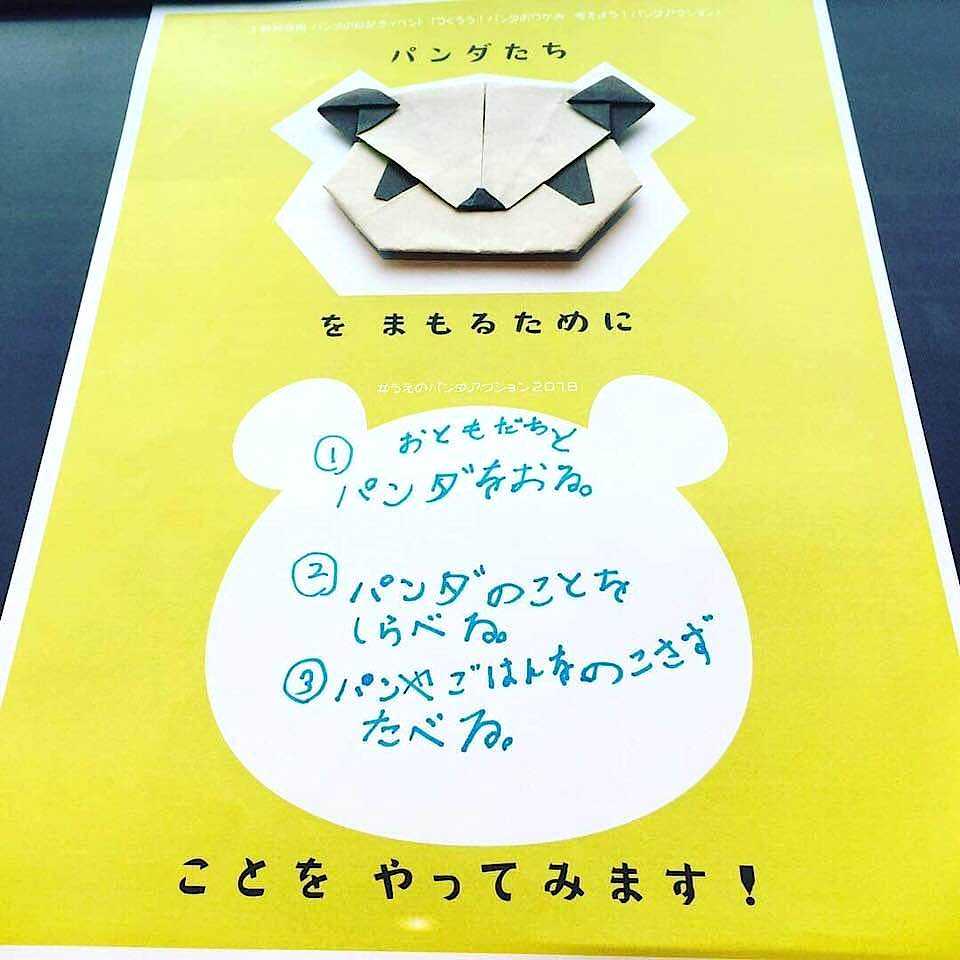 パンダのおりがみ 考えよう！パンダアクション」
パンダたち
を まもるために
#うえのパンダアクション2018
① おともだちと
パンダをおる。
② パンダのことを
しらべる。
③ パンやごはんをのこさず
たべる。
ことを やってみます！